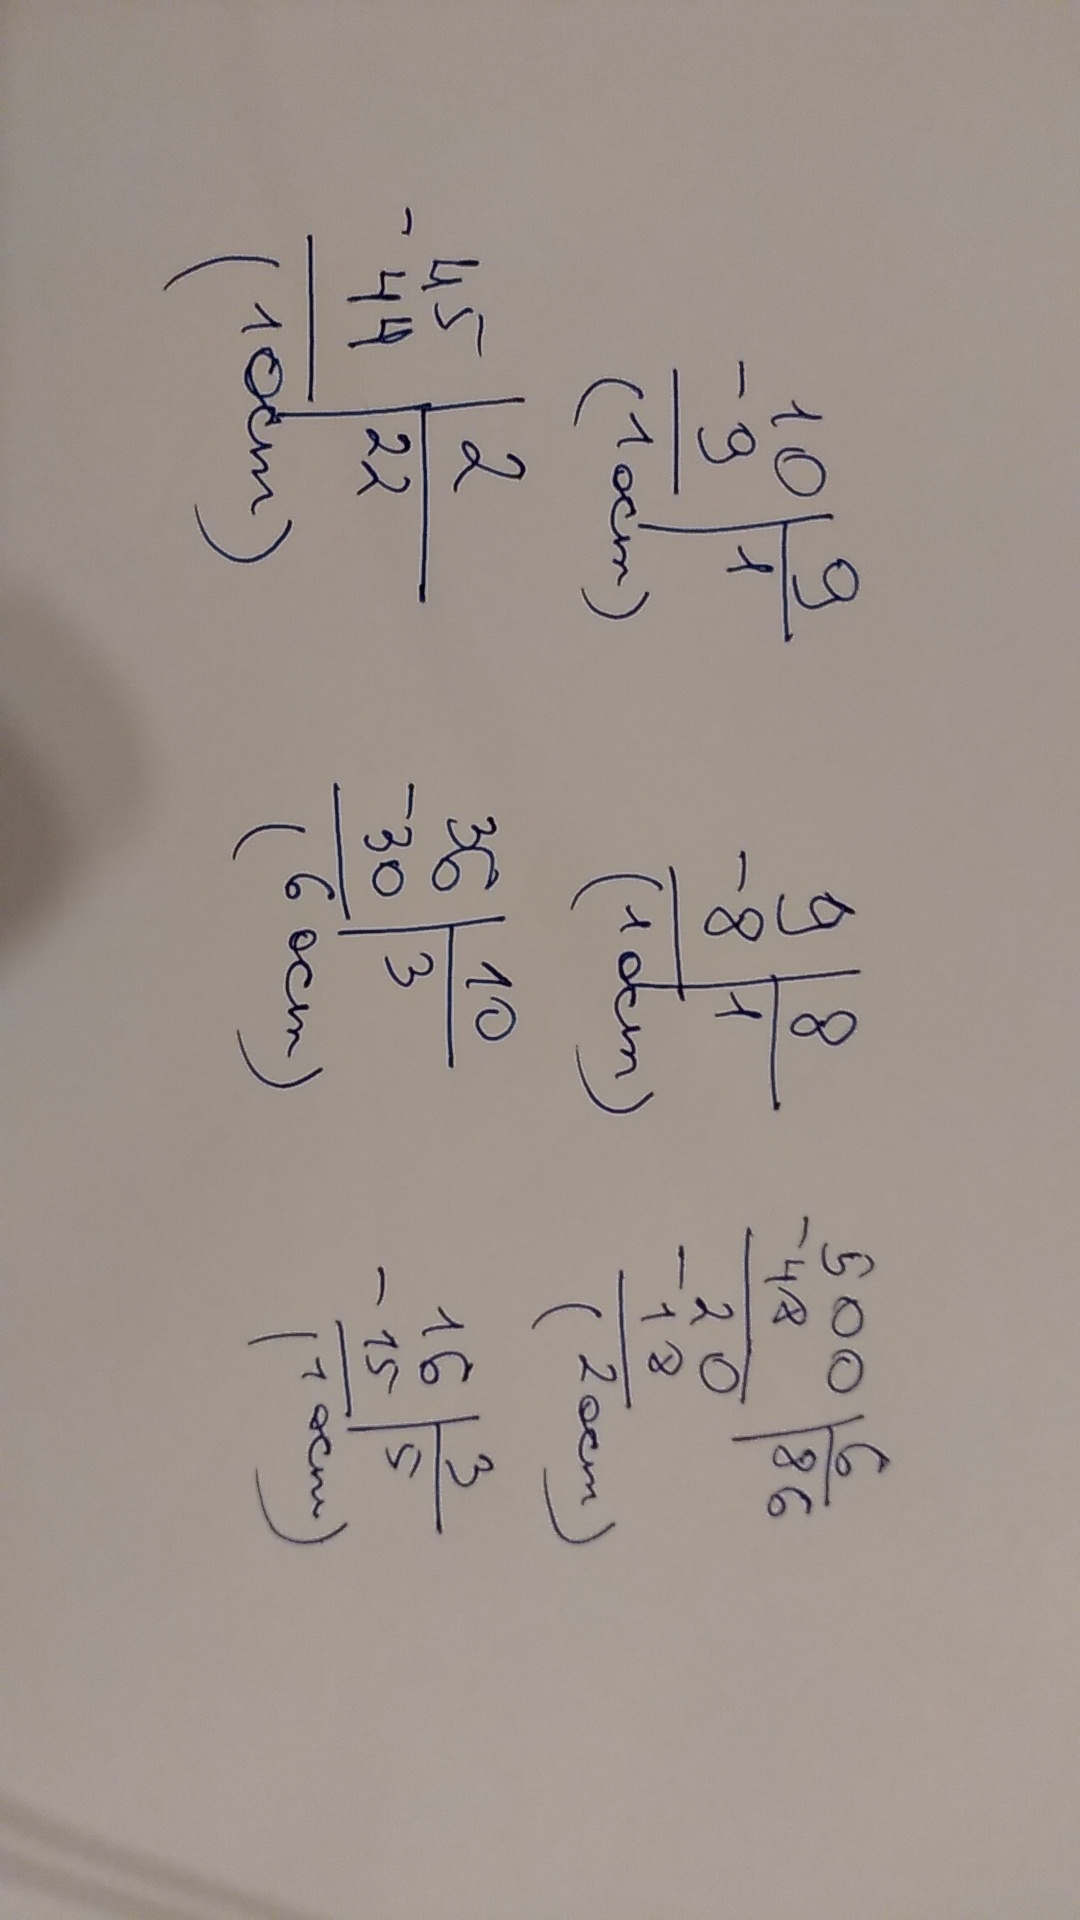 10 9
-9 1
(1 ост)
9 8
-8 1
(1 ост)
500 6
-48 86
20
-18
(2 ост)
45 2
-44 22
(1 ост)
36 10
-30 3
(6 ост)
16 3
-15 5
(1 ост)